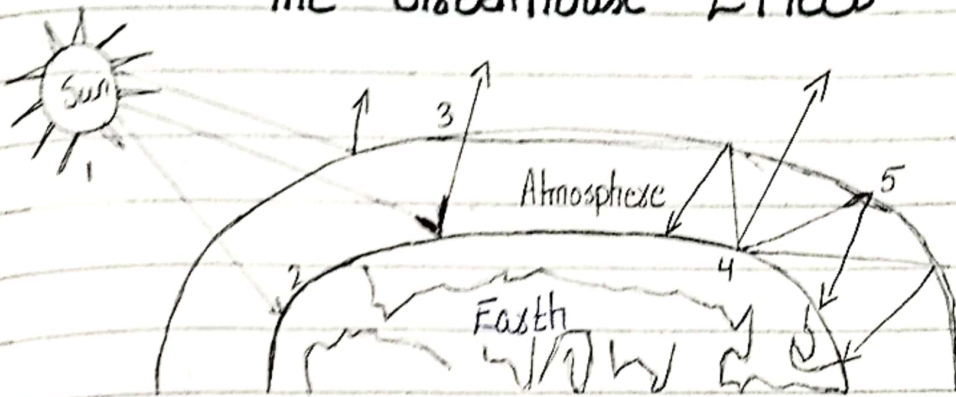 The Greenhouse Effect
Sun
1
3
Atmosphere
5
2
4
Earth